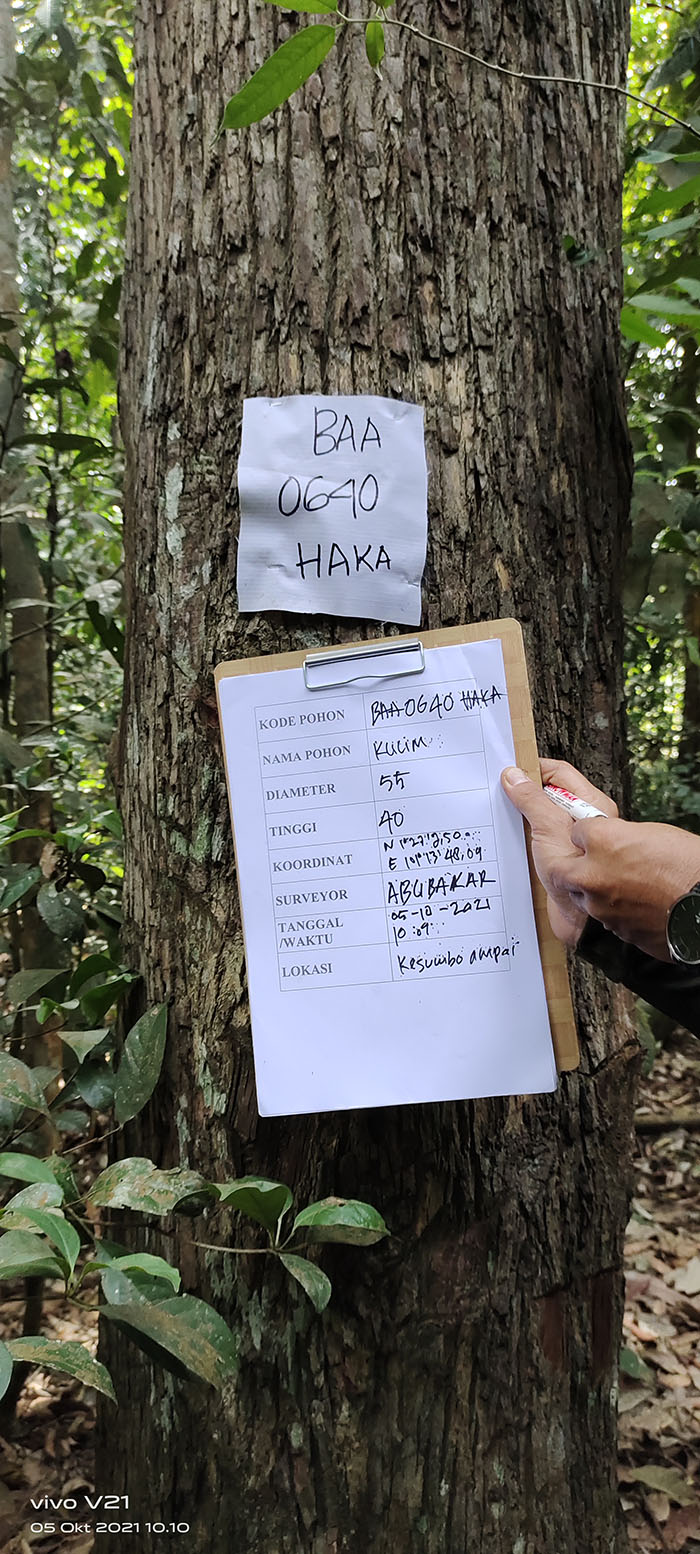 BAA
0640
HAKA
KODE POHON BAA 0640 HAKA
NAMA POHON KULIM
DIAMETER 55
TINGGI 40
KOORDINAT N 1°27'12,50
E 101°13'48,09
SURVEYOR ABUBAKAR
TANGGAL 05-10-2021
/WAKTU 10:09
LOKASI Kesumbo ampai
vivo V21
05 Okt 2021 10.10